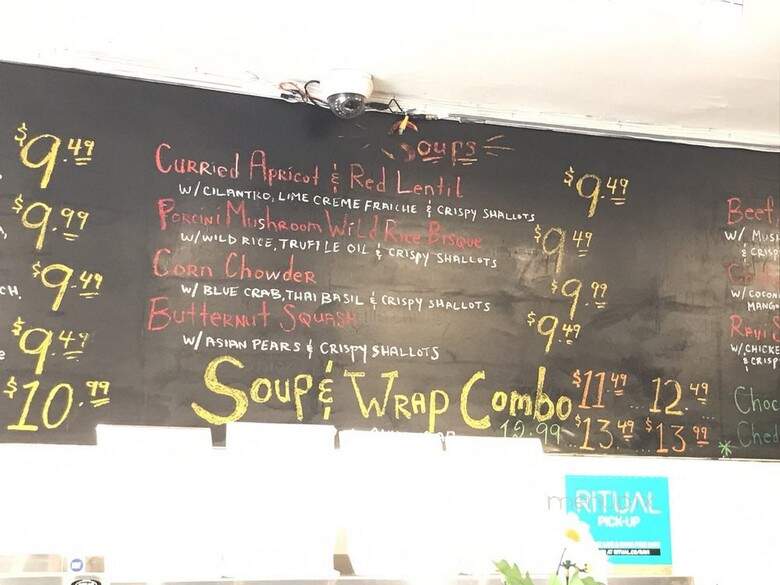 Soups
$9.49
Curried Apricot & Red Lentil $9.49
w/ CILANTRO, LIME CREME FRAICHE & CRISPY SHALLOTS
$9.99
Porcini Mushroom Wild Rice Bisque $9.49
w/ WILD RICE, TRUFFLE OIL & CRISPY SHALLOTS
$9.49
Corn Chowder $9.99
w/ BLUE CRAB, THAI BASIL & CRISPY SHALLOTS
$9.49
Butternut Squash $9.49
w/ ASIAN PEARS & CRISPY SHALLOTS
$10.99
Soup & Wrap Combo $11.49 .. 12.49
12.99 .. $13.49 $13.99
Beet
w/ MUSH
& CRISP
w/ COCON
MANGO
Ravi
w/ CHICKE
& CRISP
Choc
* Ched
RITUAL
PICK-UP